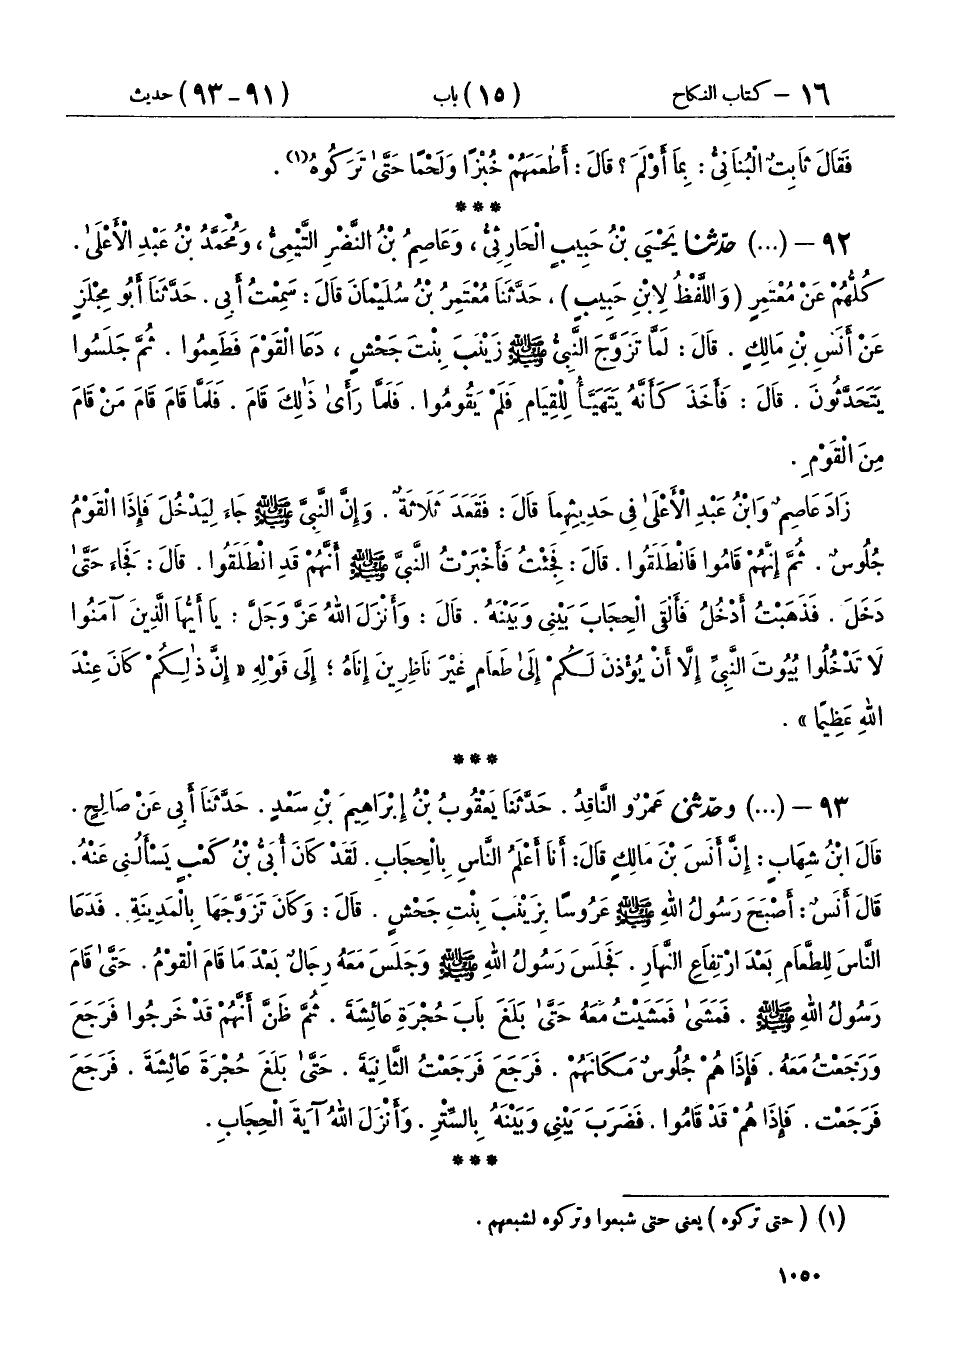 ١٦ – كتاب النكاح (١٥) باب (٩١–٩٣) حديث
فَقَالَ ثَابِتٌ الْبُنَانِيُّ : بِمَا أَوْلَمَ ؟ قَالَ : أَطْعَمَهُمْ خُبْزًا وَلَحْمًا حَتَّىٰ تَرَكُوهُ(١) .
***
٩٢ – (...) حدّثنا يَحْيَى بْنُ حَبِيبٍ الْحَارِثِيُّ ، وَعَاصِمُ بْنُ النَّضْرِ التَّيْمِيُّ ، وَمُحَمَّدُ بْنُ عَبْدِ الْأَعْلَىٰ .
كُلُّهُمْ عَنْ مُعْتَمِرٍ (وَاللَّفْظُ لِابْنِ حَبِيبٍ) ، حَدَّثَنَا مُعْتَمِرُ بْنُ سُلَيْمَانَ قَالَ : سَمِعْتُ أَبِي . حَدَّثَنَا أَبُو مِجْلَزٍ
عَنْ أَنَسِ بْنِ مَالِكٍ . قَالَ : لَمَّا تَزَوَّجَ النَّبِيُّ ﷺ زَيْنَبَ بِنْتَ جَحْشٍ ، دَعَا الْقَوْمَ فَطَعِمُوا . ثُمَّ جَلَسُوا
يَتَحَدَّثُونَ . قَالَ : فَأَخَذَ كَأَنَّهُ يَتَهَيَّأُ لِلْقِيَامِ فَلَمْ يَقُومُوا . فَلَمَّا رَأَىٰ ذَٰلِكَ قَامَ . فَلَمَّا قَامَ قَامَ مَنْ قَامَ
مِنَ الْقَوْمِ .
زَادَ عَاصِمٌ وَابْنُ عَبْدِ الْأَعْلَىٰ فِي حَدِيثِهِمَا قَالَ : فَقَعَدَ ثَلَاثَةٌ . وَإِنَّ النَّبِيَّ ﷺ جَاءَ لِيَدْخُلَ فَإِذَا الْقَوْمُ
جُلُوسٌ . ثُمَّ إِنَّهُمْ قَامُوا فَانْطَلَقُوا . قَالَ : فَجِئْتُ فَأَخْبَرْتُ النَّبِيَّ ﷺ أَنَّهُمْ قَدِ انْطَلَقُوا . قَالَ : فَجَاءَ حَتَّىٰ
دَخَلَ . فَذَهَبْتُ أَدْخُلُ فَأَلْقَى الْحِجَابَ بَيْنِي وَبَيْنَهُ . قَالَ : وَأَنْزَلَ اللهُ عَزَّ وَجَلَّ : يَا أَيُّهَا الَّذِينَ آمَنُوا
لَا تَدْخُلُوا بُيُوتَ النَّبِيِّ إِلَّا أَنْ يُؤْذَنَ لَكُمْ إِلَىٰ طَعَامٍ غَيْرَ نَاظِرِينَ إِنَاهُ ؛ إِلَى قَوْلِهِ « إِنَّ ذَٰلِكُمْ كَانَ عِنْدَ
اللهِ عَظِيمًا » .
***
٩٣ – (...) وحدّثني عَمْرٌو النَّاقِدُ . حَدَّثَنَا يَعْقُوبُ بْنُ إِبْرَاهِيمَ بْنِ سَعْدٍ . حَدَّثَنَا أَبِي عَنْ صَالِحٍ .
قَالَ ابْنُ شِهَابٍ : إِنَّ أَنَسَ بْنَ مَالِكٍ قَالَ : أَنَا أَعْلَمُ النَّاسِ بِالْحِجَابِ . لَقَدْ كَانَ أُبَيُّ بْنُ كَعْبٍ يَسْأَلُنِي عَنْهُ .
قَالَ أَنَسٌ : أَصْبَحَ رَسُولُ اللهِ ﷺ عَرُوسًا بِزَيْنَبَ بِنْتِ جَحْشٍ . قَالَ : وَكَانَ تَزَوَّجَهَا بِالْمَدِينَةِ . فَدَعَا
النَّاسَ لِلطَّعَامِ بَعْدَ ارْتِفَاعِ النَّهَارِ . فَجَلَسَ رَسُولُ اللهِ ﷺ وَجَلَسَ مَعَهُ رِجَالٌ بَعْدَ مَا قَامَ الْقَوْمُ . حَتَّىٰ قَامَ
رَسُولُ اللهِ ﷺ . فَمَشَىٰ فَمَشَيْتُ مَعَهُ حَتَّىٰ بَلَغَ بَابَ حُجْرَةِ عَائِشَةَ . ثُمَّ ظَنَّ أَنَّهُمْ قَدْ خَرَجُوا فَرَجَعَ
وَرَجَعْتُ مَعَهُ . فَإِذَا هُمْ جُلُوسٌ مَكَانَهُمْ . فَرَجَعَ فَرَجَعْتُ الثَّانِيَةَ . حَتَّىٰ بَلَغَ حُجْرَةَ عَائِشَةَ . فَرَجَعَ
فَرَجَعْت . فَإِذَا هُمْ قَدْ قَامُوا . فَضَرَبَ بَيْنِي وَبَيْنَهُ بِالسِّتْرِ . وَأَنْزَلَ اللهُ آيَةَ الْحِجَابِ .
***
(١) ( حتى تركوه ) يعنى حتى شبعوا وتركوه لشبعهم .
١٠٥٠